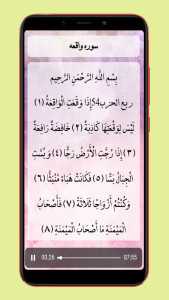 سوره واقعه
بِسْمِ اللَّهِ الرَّحْمَنِ الرَّحِيمِ
ربع الحزب54إِذَا وَقَعَتِ الْوَاقِعَةُ (١)
لَيْسَ لِوَقْعَتِهَا كَاذِبَةٌ (٢) خَافِضَةٌ رَافِعَةٌ
(٣) إِذَا رُجَّتِ الْأَرْضُ رَجًّا (٤) وَبُسَّتِ
الْجِبَالُ بَسًّا (٥) فَكَانَتْ هَبَاءً مُنْبَثًّا (٦)
وَكُنْتُمْ أَزْوَاجًا ثَلَاثَةً (٧) فَأَصْحَابُ
الْمَيْمَنَةِ مَا أَصْحَابُ الْمَيْمَنَةِ (٨)
00:26 07:55